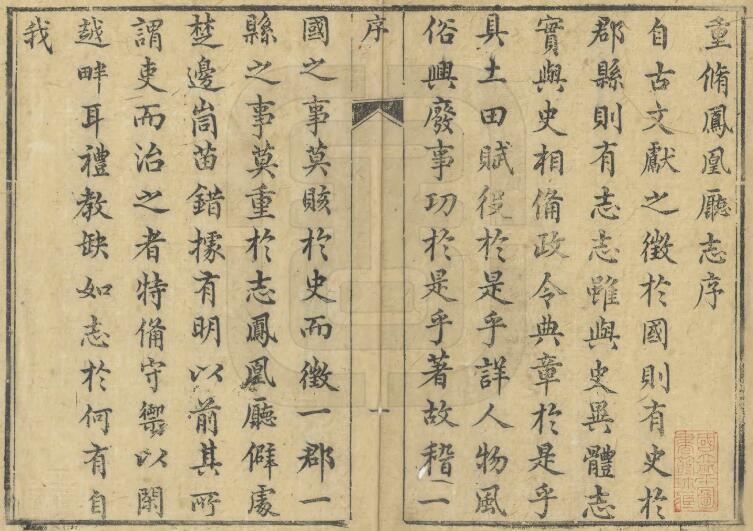 重脩鳳凰廳志序
自古文獻之徵於國則有史於
郡縣則有志志雖與史異體志
實與史相備政令典章於是乎
具土田賦役於是乎詳人物風
俗興廢事功於是乎著故稽一
序
國之事莫賅於史而徵一郡一
縣之事莫重於志鳳凰廳僻處
楚邊峝苗錯據有明以前其所
謂吏而治之者特備守禦以閑
越畔耳禮教缺如志於何有自
我